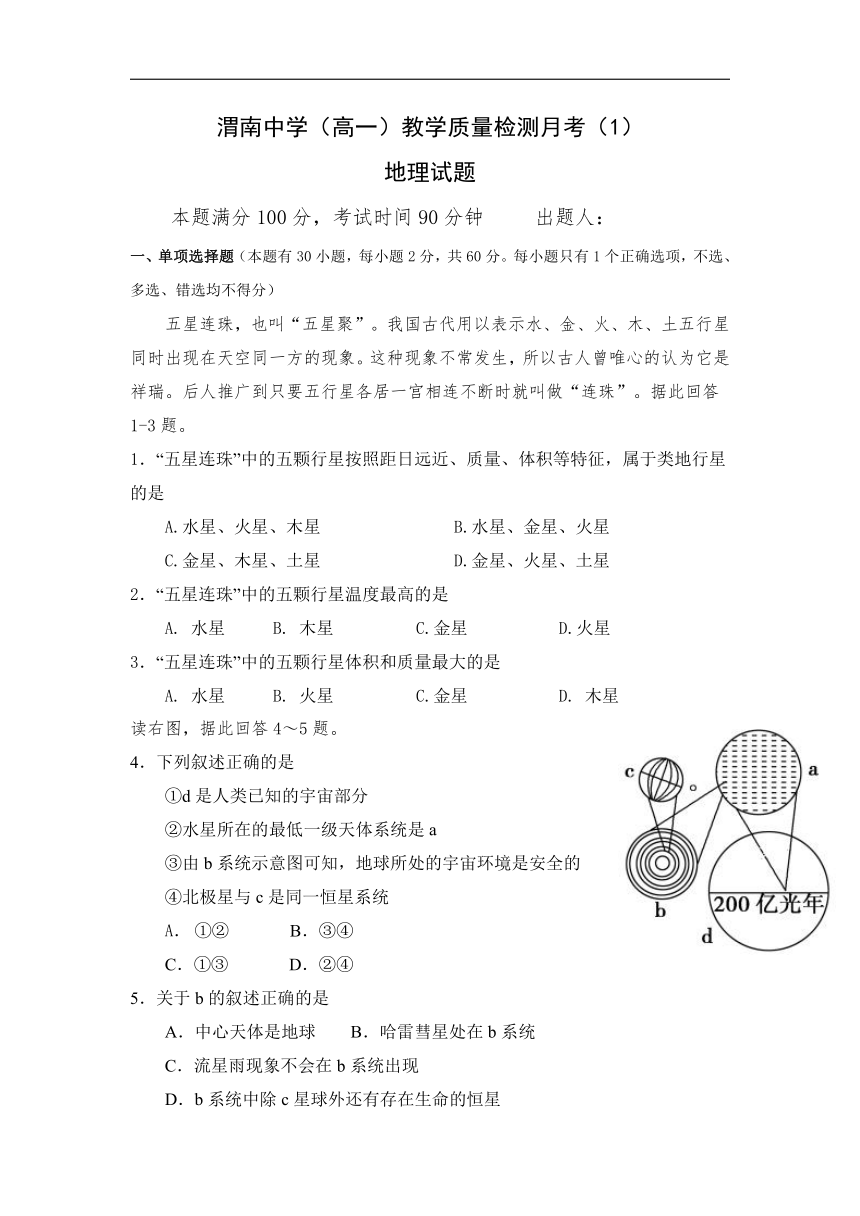 渭南中学（高一）教学质量检测月考（1）
地理试题
本题满分100分，考试时间90分钟 出题人：
一、单项选择题（本题有30小题，每小题2分，共60分。每小题只有1个正确选项，不选、
多选、错选均不得分）
五星连珠，也叫“五星聚”。我国古代用以表示水、金、火、木、土五行星
同时出现在天空同一方的现象。这种现象不常发生，所以古人曾唯心的认为它是
祥瑞。后人推广到只要五行星各居一宫相连不断时就叫做“连珠”。据此回答
1-3题。
1．“五星连珠”中的五颗行星按照距日远近、质量、体积等特征，属于类地行星
的是
A.水星、火星、木星 B.水星、金星、火星
C.金星、木星、土星 D.金星、火星、土星
2．“五星连珠”中的五颗行星温度最高的是
A. 水星 B. 木星 C.金星 D.火星
3．“五星连珠”中的五颗行星体积和质量最大的是
A. 水星 B. 火星 C.金星 D. 木星
读右图，据此回答4～5题。
4．下列叙述正确的是
①d是人类已知的宇宙部分
②水星所在的最低一级天体系统是a
③由b系统示意图可知，地球所处的宇宙环境是安全的
④北极星与c是同一恒星系统
A．①② B．③④
C．①③ D．②④
c
a
b
200亿光年
d
5．关于b的叙述正确的是
A．中心天体是地球 B．哈雷彗星处在b系统
C．流星雨现象不会在b系统出现
D．b系统中除c星球外还有存在生命的恒星